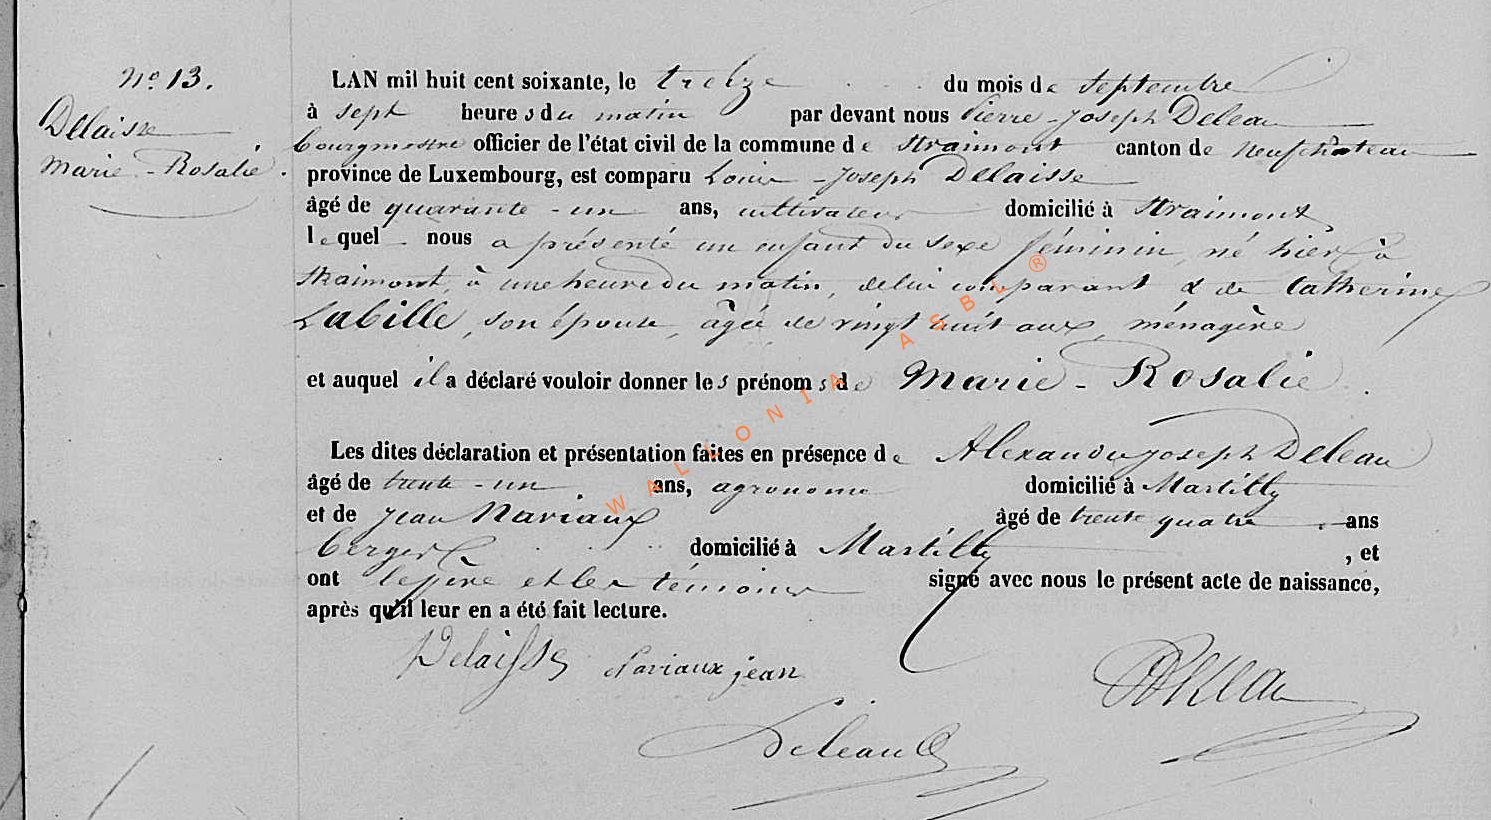 N° 13.
Delaisse
Marie-Rosalie.
LAN mil huit cent soixante, le treize du mois de Septembre
à sept heures du matin par devant nous Pierre-Joseph Deleau
bourgmestre officier de l'état civil de la commune de Straimont canton de Neufchateau
province de Luxembourg, est comparu Louis-Joseph Delaisse
âgé de quarante-un ans, cultivateur domicilié à Straimont
lequel nous a présenté un enfant du sexe féminin, né hier à
Straimont, à une heure du matin, de lui comparant & de Catherine
Labille, son épouse, âgée de vingt huit ans, ménagère
et auquel il a déclaré vouloir donner les prénoms de Marie-Rosalie.
Les dites déclaration et présentation faites en présence de Alexandre Joseph Deleau
âgé de trente-un ans, agronome domicilié à Martilly
et de Jean Naviaux âgé de trente quatre ans
berger domicilié à Martilly, et
ont le père et les témoins signé avec nous le présent acte de naissance,
après qu'il leur en a été fait lecture.
Delaisse Naviaux jean
Deleau
Deleau
WALLONIA ASBL ®